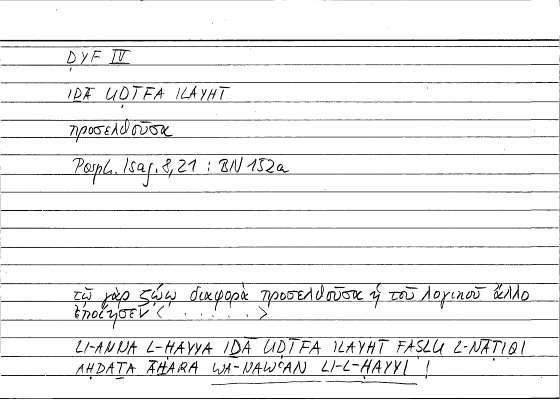 ḌYF IV
IḎĀ UḌĪFA ILAYHĪ
προσελθοῦσα
Porph. Isag. 8,21 : BN 152a
τῷ γὰρ ζῴῳ διαφορὰ προσελθοῦσα ἡ τοῦ λογικοῦ ἄλλο
ἐποίησεν < . . . . . . >
LI-ANNA L-ḤAYYA IḎĀ UḌĪFA ILAYHĪ FAṢLU L-NĀṬIQI
AḤDAṮA ĀḪARA WA-NAWʿAN LI-L-ḤAYYI !